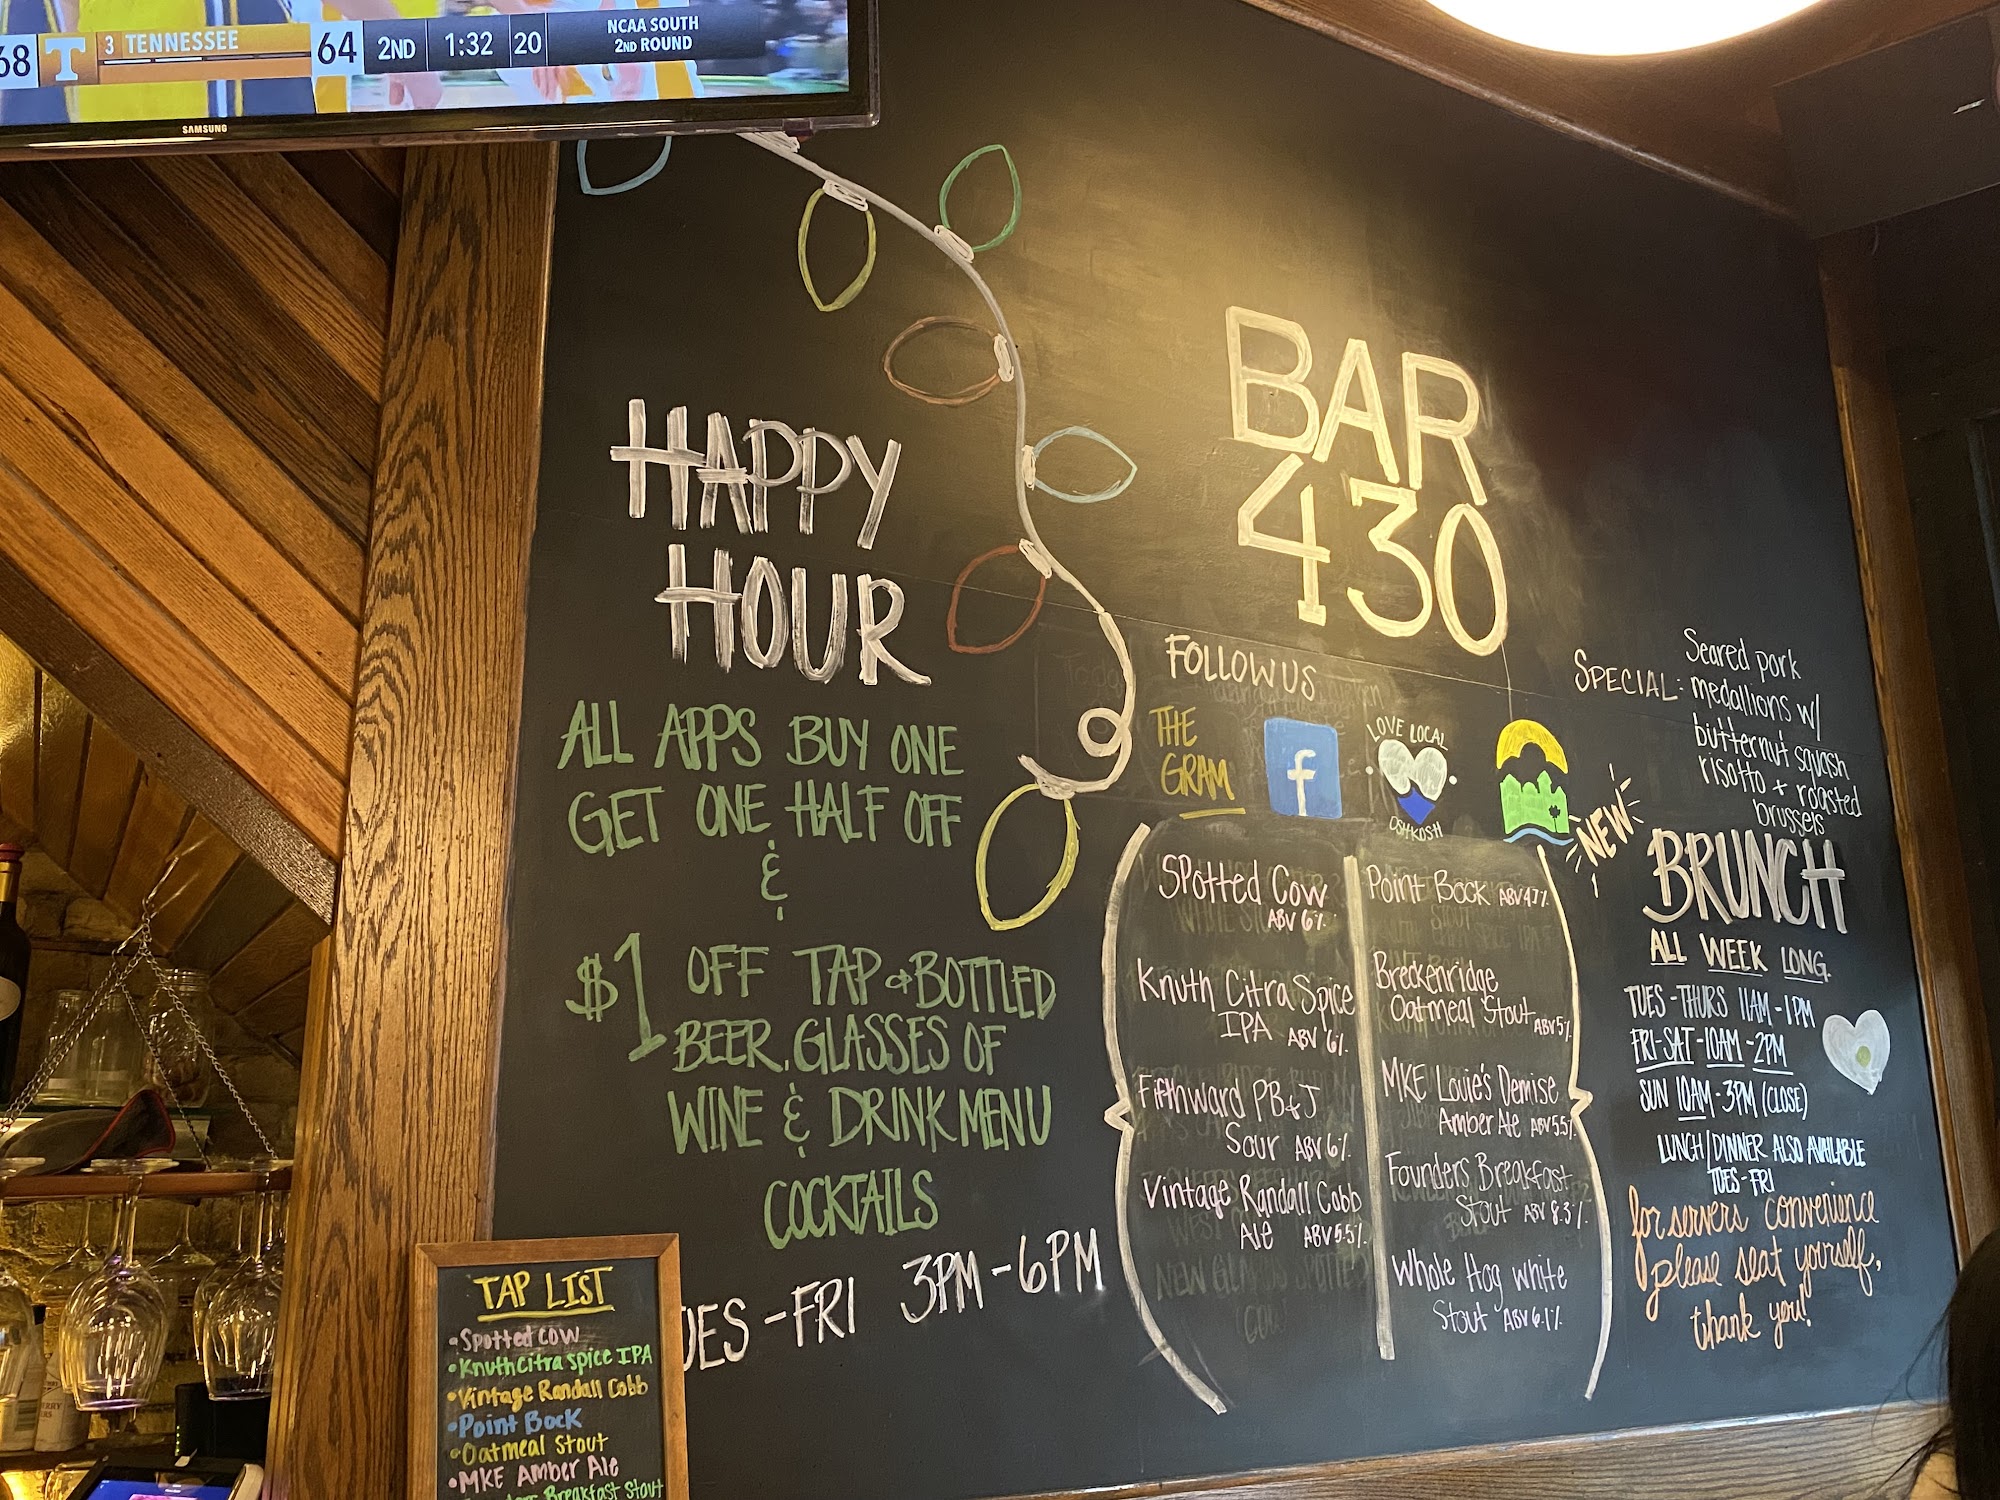 68
3 TENNESSEE
64
2ND
1:32
20
NCAA SOUTH
2ND ROUND
SAMSUNG
HAPPY
HOUR
ALL APPS BUY ONE
GET ONE HALF OFF
&
$1 OFF TAP + BOTTLED
BEER, GLASSES OF
WINE & DRINK MENU
COCKTAILS
UES - FRI 3PM - 6PM
TAP LIST
• Spotted Cow
• Knuth Citra Spice IPA
• Vintage Randall Cobb
• Point Bock
• Oatmeal Stout
• MKE Amber Ale
Breakfast Stout
BAR
430
FOLLOW US
THE
GRAM
f
LOVE LOCAL
OSHKOSH
Spotted Cow
ABV 6%
Knuth Citra Spice
IPA ABV 6%
Fifthward PB+J
Sour ABV 6%
Vintage Randall Cobb
Ale ABV 5.5%
Point Bock ABV 4.7%
Breckenridge
Oatmeal Stout ABV 5%
MKE Louie's Demise
Amber Ale ABV 5.5%
Founders Breakfast
Stout ABV 8.3%
Whole Hog White
Stout ABV 6.1%
SPECIAL: Seared pork
medallions w/
butternut squash
risotto + roasted
brussels
NEW
BRUNCH
ALL WEEK LONG.
TUES - THURS 11AM - 1PM
FRI - SAT - 10AM - 2PM
SUN 10AM - 3PM (CLOSE)
LUNCH/DINNER ALSO AVAILABLE
TUES - FRI
for servers convenience
please seat yourself,
thank you!